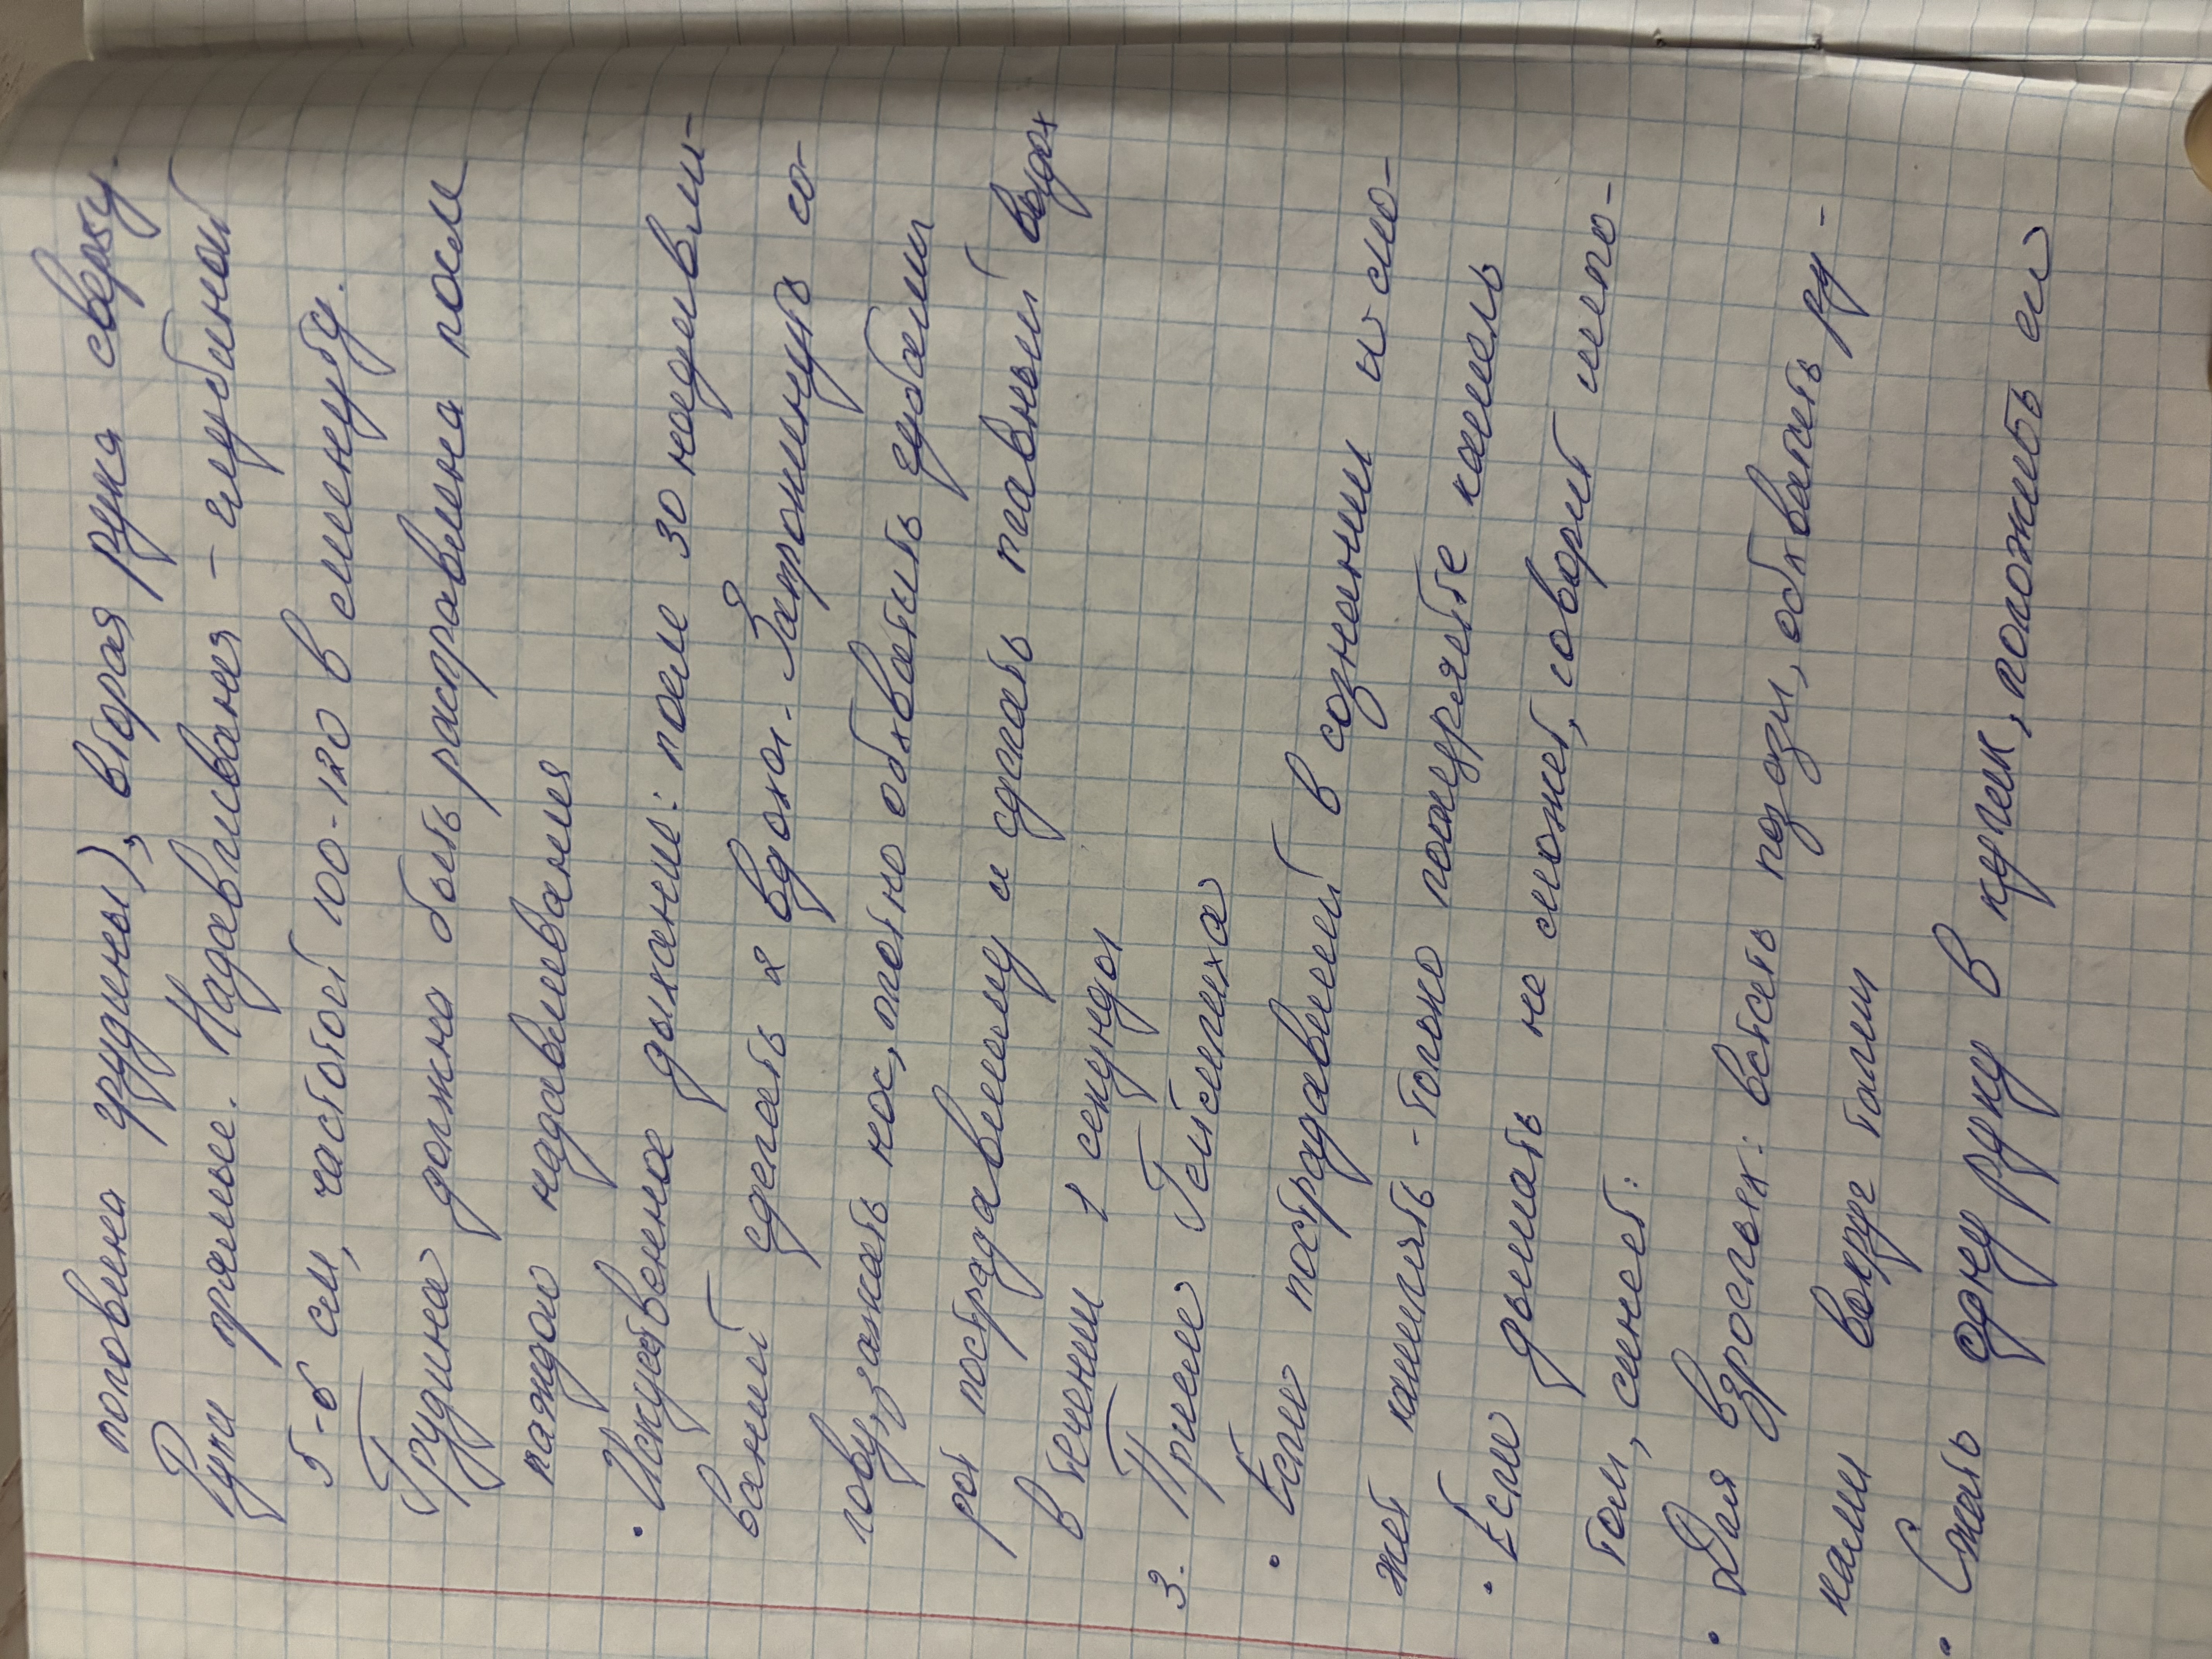 половина грудины), вторая рука сверху.
Руки прямые. Надавливания - глубиной
5-6 см, частотой 100-120 в минуту.
Грудина должна быть расправлена после
каждого надавливания
• Искуственное дыхание: после 30 надавли-
ваний сделать 2 вдоха. Запрокинуть го-
лову, зажать нос, плотно обхватить губами
рот пострадавшему и сделать плавный выдох
в течении 1 секунды
3. Прием Геймлиха
• Если пострадавший в сознании и мо-
жет кашлять - только поощряйте кашель
• Если дышать не может, говорит шепо-
том, синеет:
• Для взрослых: встать позади, обхватить ру-
ками вокруг талии
• Сжать одну руку в кулак, положить ее